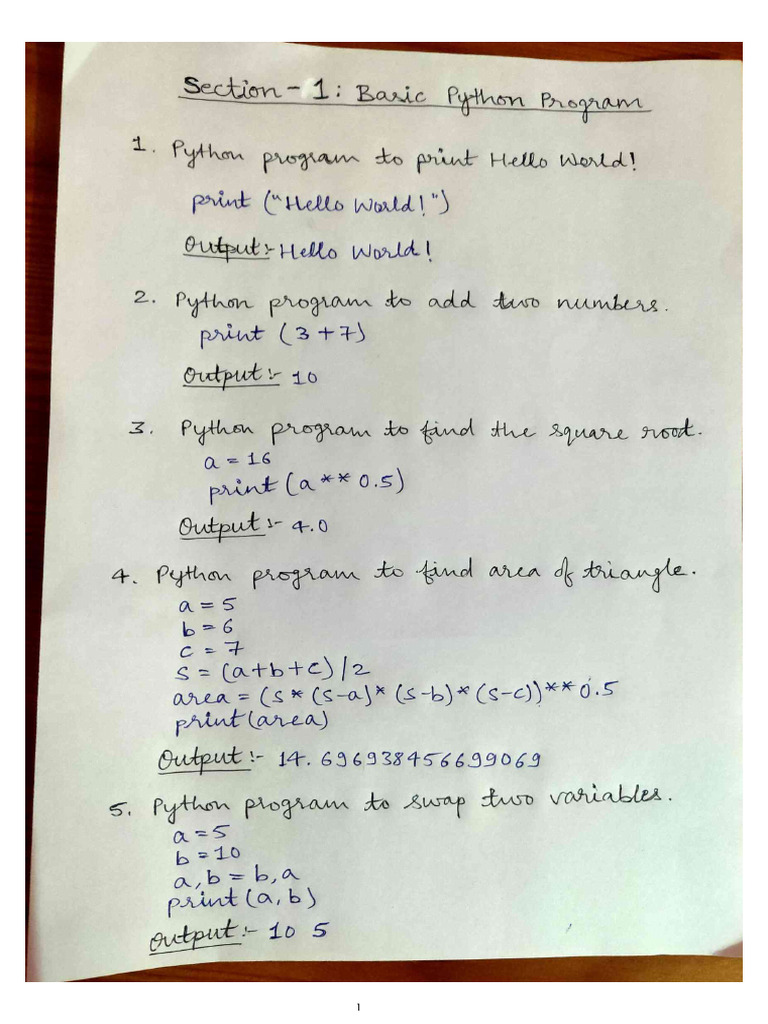 Section - 1: Basic Python Program
1. Python program to print Hello World!
print ("Hello World!")
Output:- Hello World!
2. Python program to add two numbers.
print (3+7)
Output:- 10
3. Python program to find the square root.
a = 16
print (a** 0.5)
Output:- 4.0
4. Python program to find area of triangle.
a = 5
b = 6
c = 7
s = (a+b+c)/2
area = (s* (s-a)* (s-b)* (s-c))** 0.5
print(area)
Output:- 14.696938456699069
5. Python program to swap two variables.
a = 5
b = 10
a, b = b, a
print(a, b)
Output:- 10 5
1